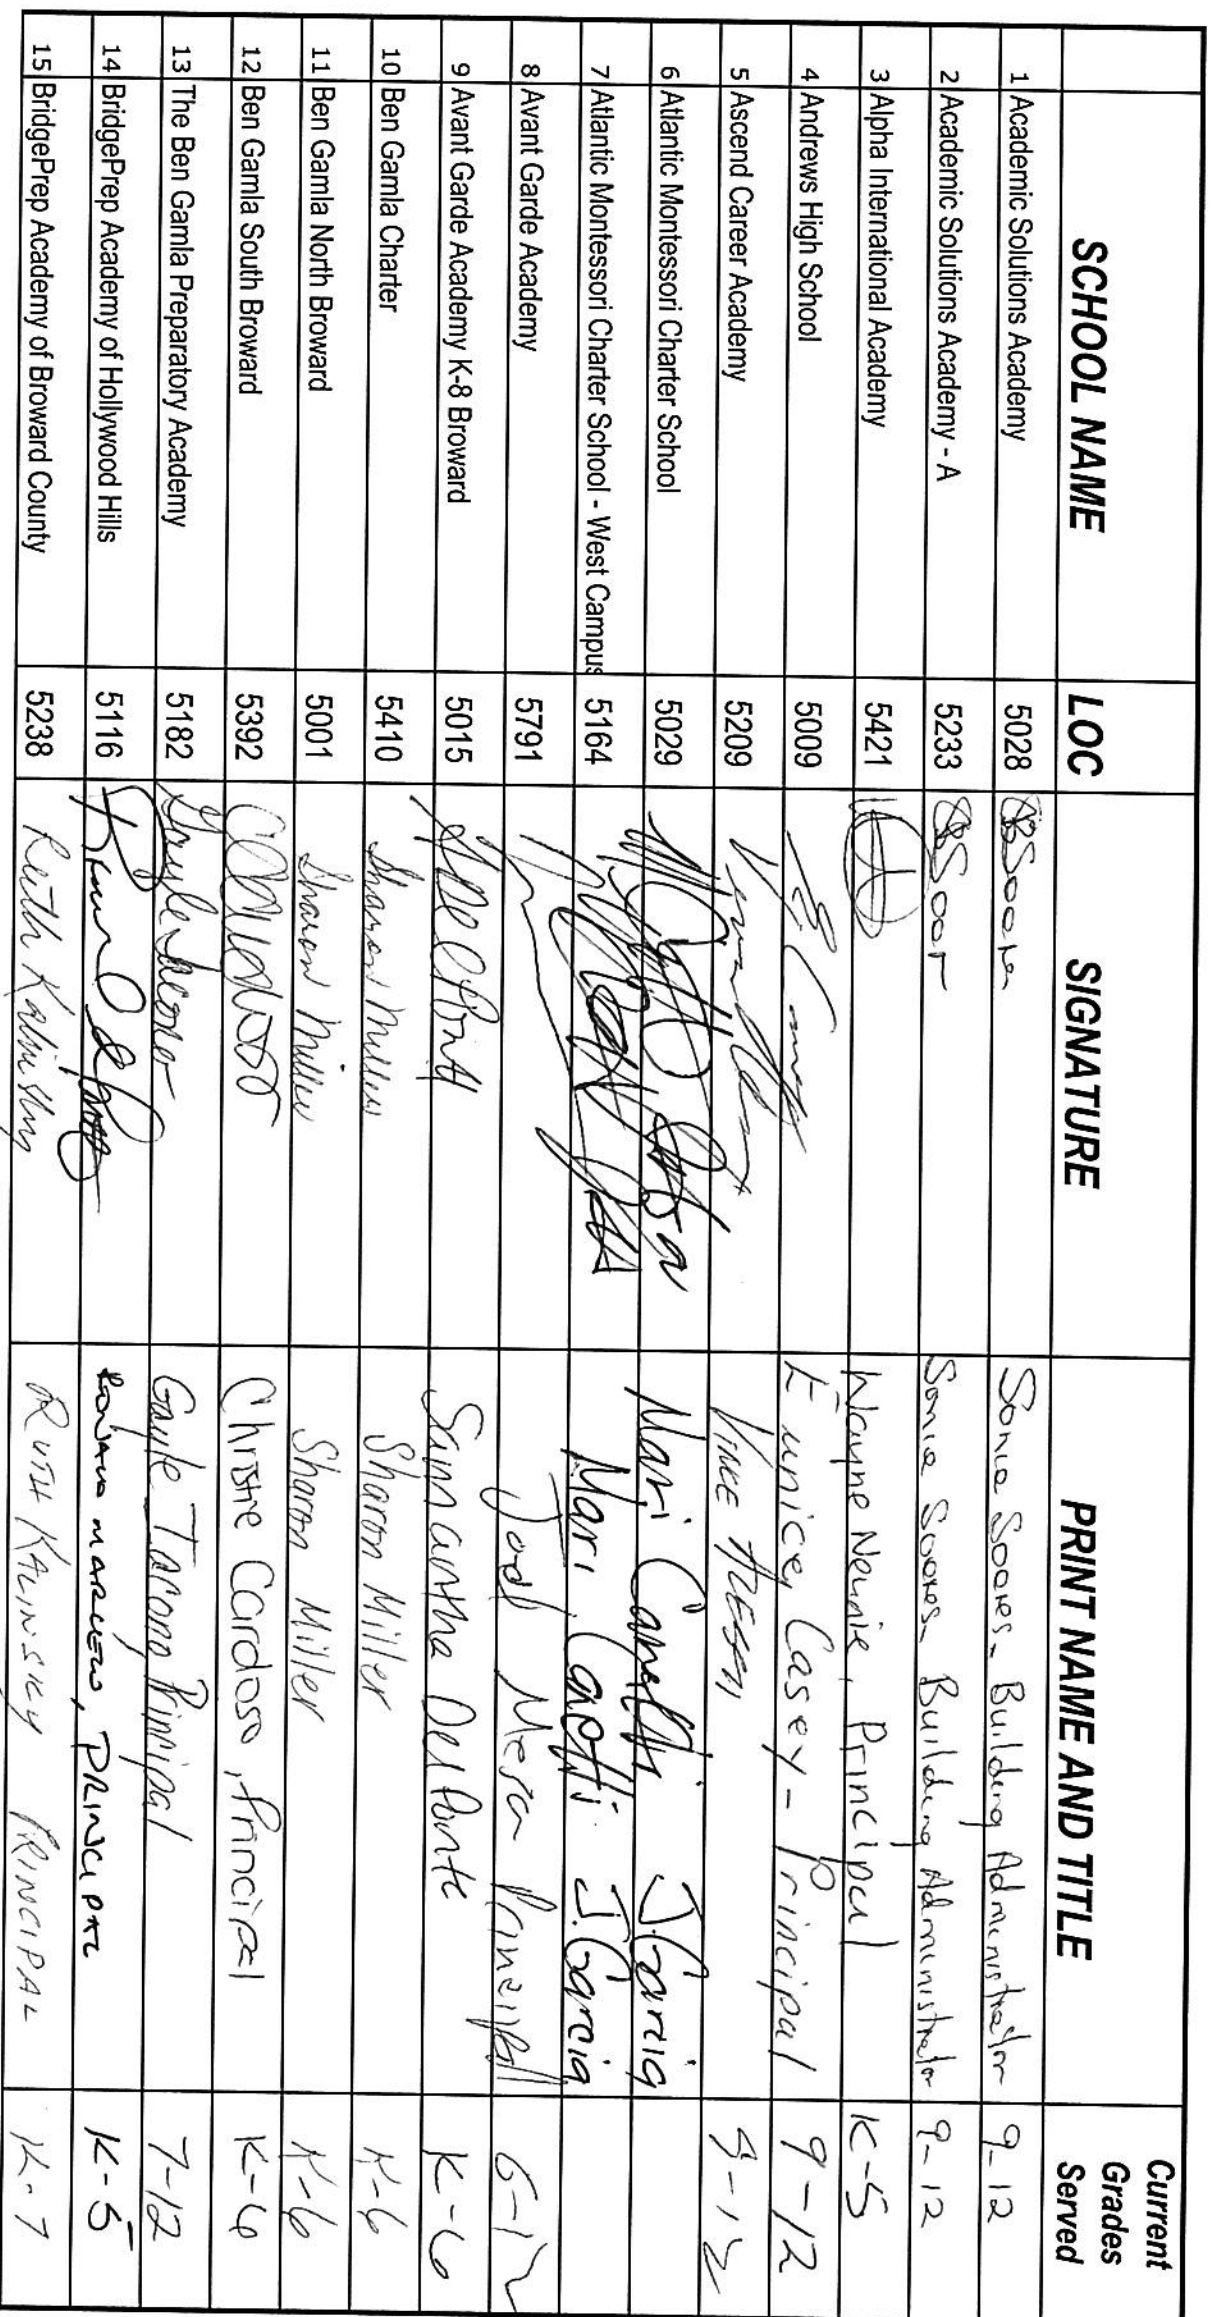 SCHOOL NAME LOC SIGNATURE PRINT NAME AND TITLE Current Grades Served
1 Academic Solutions Academy 5028 Sonia Soares - Building Administrator 9-12
2 Academic Solutions Academy - A 5233 Sonia Soares - Building Administrator 9-12
3 Alpha International Academy 5421 Wayne Neunie, Principal K-5
4 Andrews High School 5009 Eunice Casey - Principal 9-12
5 Ascend Career Academy 5209 Vince 9-12
6 Atlantic Montessori Charter School 5029 Mari J. Garcia
7 Atlantic Montessori Charter School - West Campus 5164 Mari J. Garcia
8 Avant Garde Academy 5791 Mesa Principal 6-12
9 Avant Garde Academy K-8 Broward 5015 Samantha Del Ponte K-6
10 Ben Gamla Charter 5410 Sharon Miller Sharon Miller K-6
11 Ben Gamla North Broward 5001 Sharon Miller Sharon Miller K-6
12 Ben Gamla South Broward 5392 Christie Cardoso, Principal K-6
13 The Ben Gamla Preparatory Academy 5182 Gayle Iacono Principal 7-12
14 BridgePrep Academy of Hollywood Hills 5116 PRINCIPAL K-5
15 BridgePrep Academy of Broward County 5238 Ruth Kalinsky RUTH KALINSKY PRINCIPAL K-7